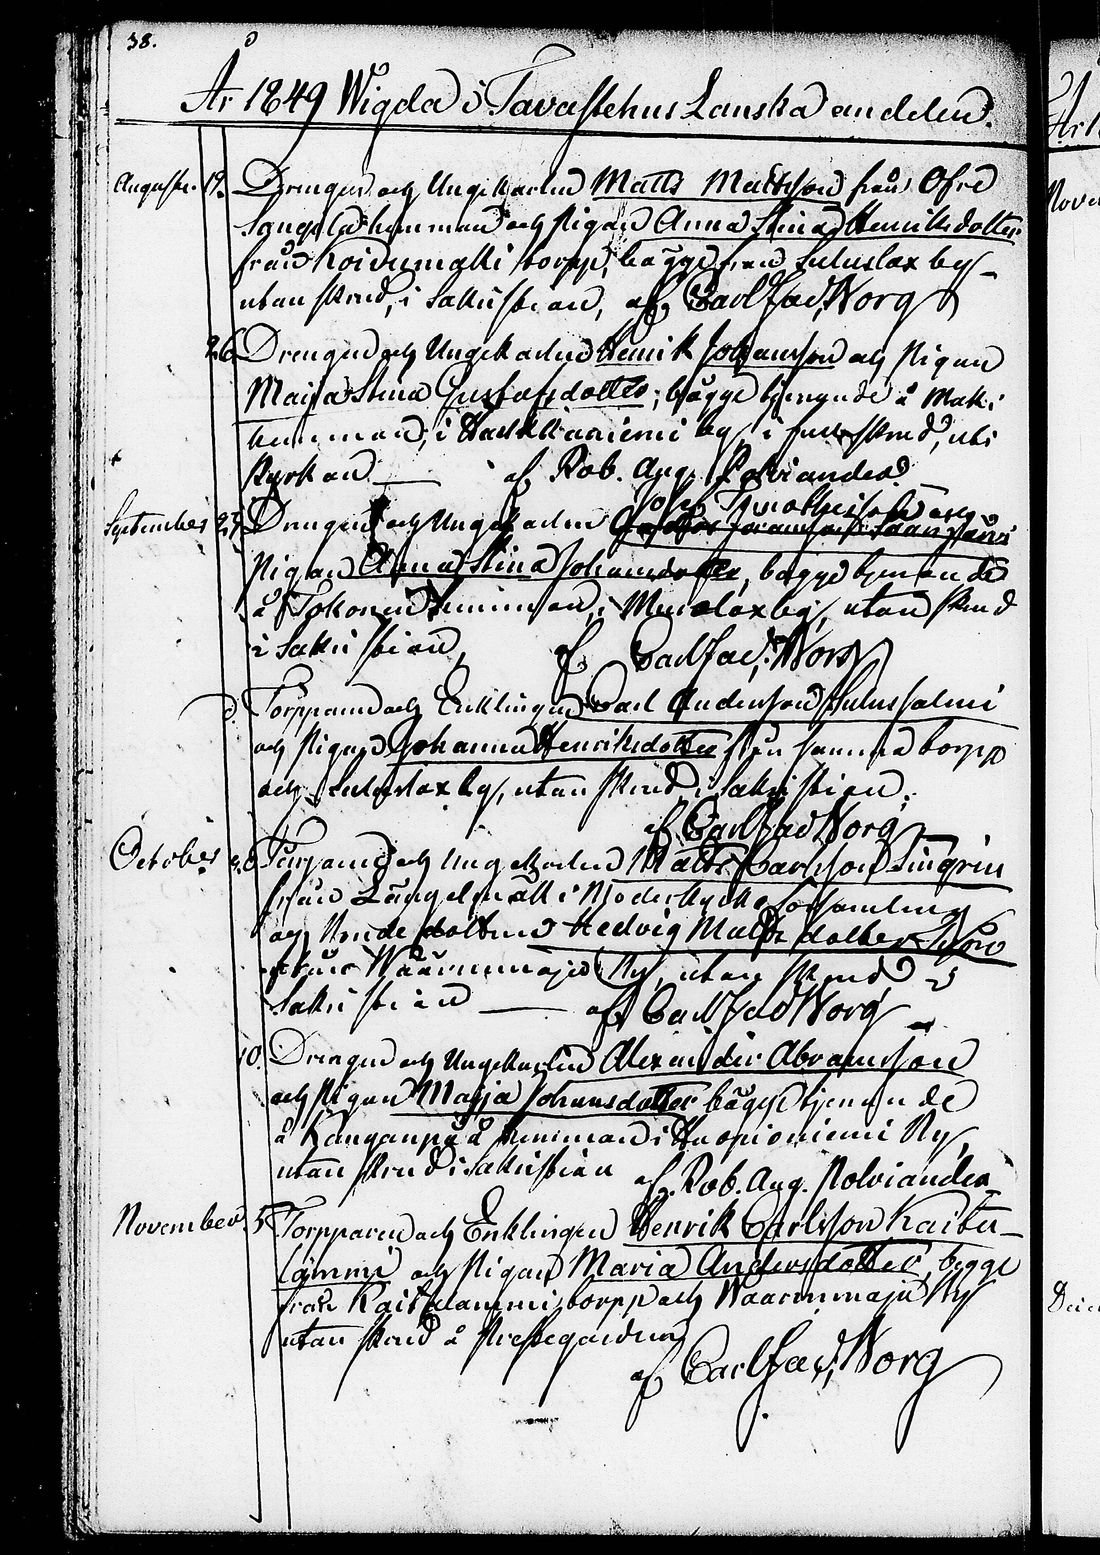 38.
År 1849 Wigda i Tavastehus Lenska andelen.
Augusti. 19. Drengen och Ungekarlen Matts Mattsson från Öfre
hemman och Pigan Anna Stina Henriksdotter
från Koivumäki torpp, bägge från by
utan skrud, i Sakristian, af Carl Jac. Norg
26 Drengen och Ungekarlen Henrik Johansson och Pigan
Maija Stina Gustafsdotter, bägge tjenande å Mäki
hemman, i by, i skrud, uti
Kyrkan — af Rob. Aug. Polviander
Josef Timotheisson och
September 23. Drengen och Ungekarlen
Pigan Anna Stina Johansdotter, bägge tjenande
å Tokonen hemman, i by, utan skrud
i Sakristian, af Carl Jac. Norg
d. Torpparen och Enklingen Carl Andersson
och Pigan Johanna Henriksdotter från samma torpp
och by, utan skrud, i Sakristian,
af Carl Jac Norg
October och Ungekarlen Matts Carlsson
från Längelmäki Moderkyrko Församling
och Bondedottren Hedvig Matts dotter
från Waarinmaja By, utan skrud i
Sakristian — af Carl Jac Norg
10. Drengen och Ungekarlen Alexander Abramsson
och Pigan Maija Johansdotter bägge tjenande
å Kanganpää hemman i By,
utan skrud i Sakristian af Rob. Aug. Polviander
November. 5 Torpparen och Enklingen Henrik Carlsson Kaita-
lammi och Pigan Maria Andersdotter, bägge
från Kaitalammi torpp och Waarinmaja By
utan skrud å Prestegården
af Carl Jac. Norg